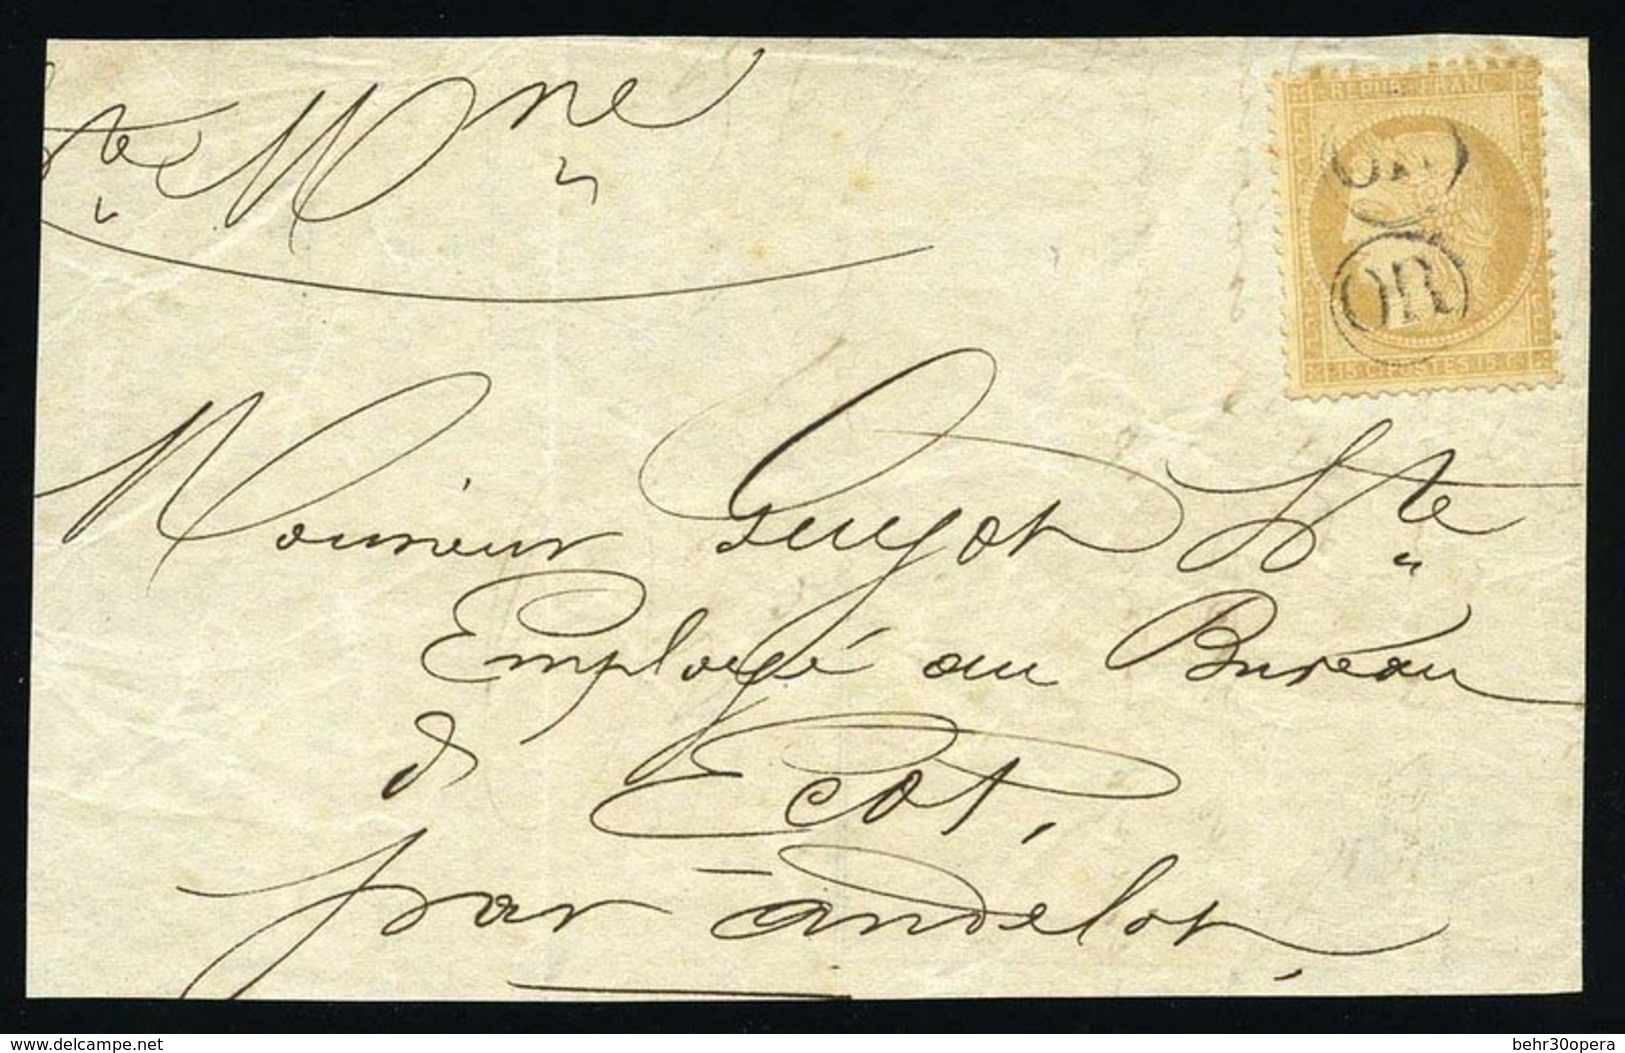 Hte Mne
REPUB FRANC
OR
OR
15 C POSTES 15 C
Monsieur Guyot Hte
Employé au Bureau
d'
Ecot,
par Andelot,
www.delcampe.net
behr30opera